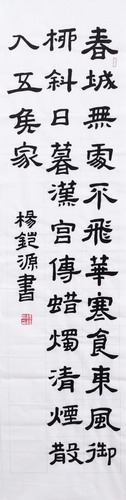 春城無處不飛華寒食東風御
柳斜日暮漢宮傳蜡燭清煙散
入五侯家
楊鎧源書